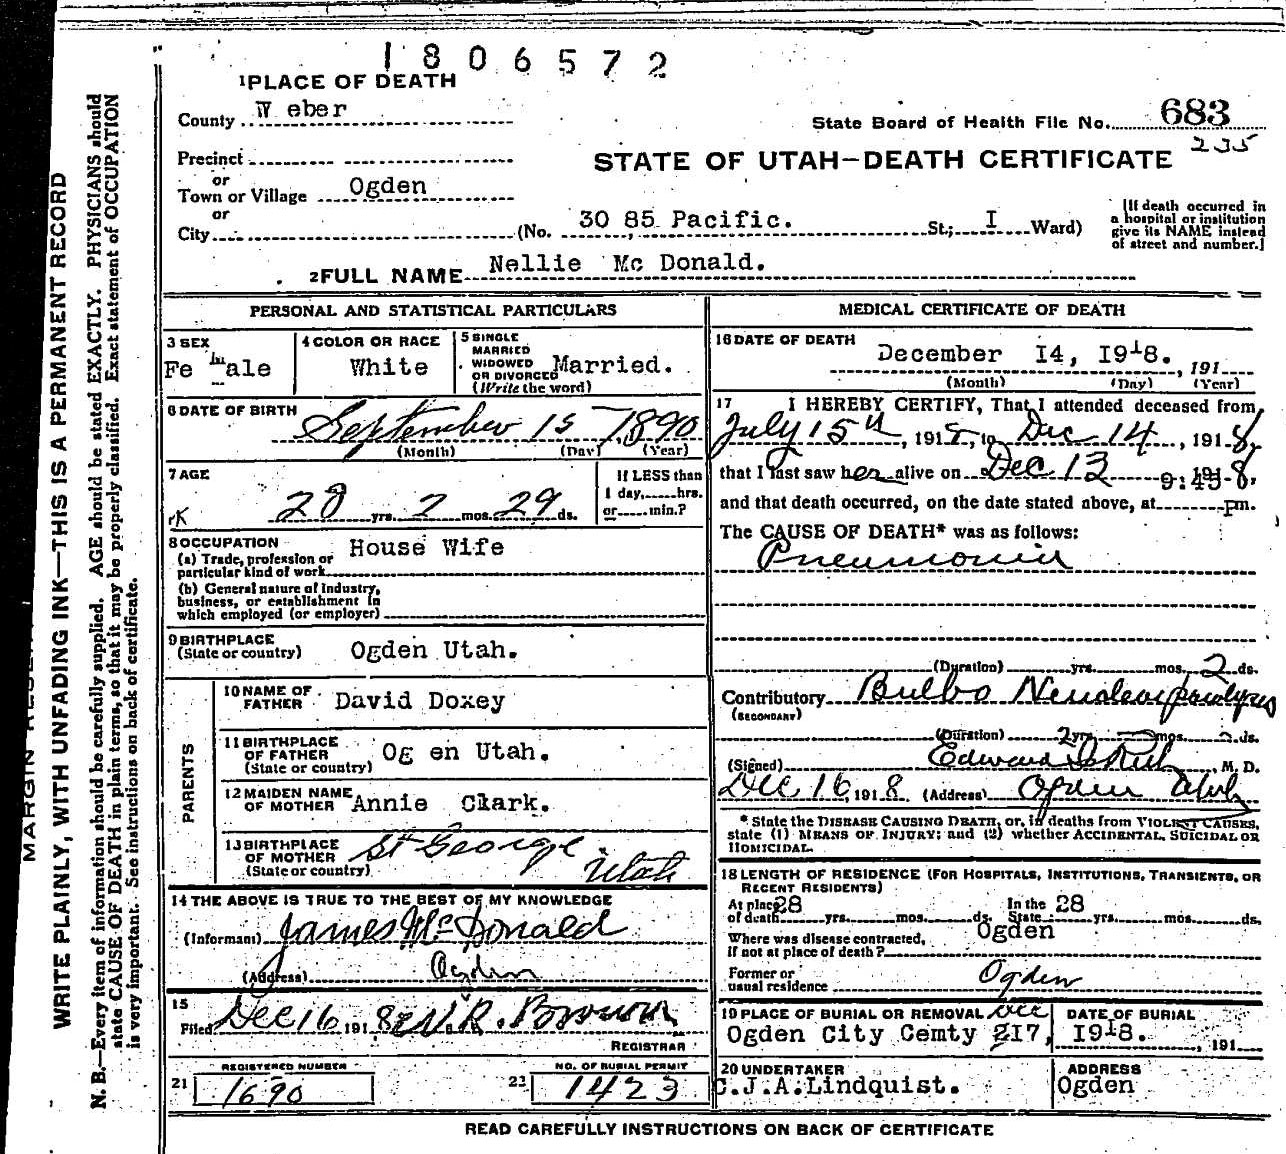 1806572
1 PLACE OF DEATH
County W eber
State Board of Health File No. 683
235
Precinct
STATE OF UTAH—DEATH CERTIFICATE
or
Town or Village Ogden
or
City (No. 30 85 Pacific. St.; I Ward)
[If death occurred in
a hospital or institution
give its NAME instead
of street and number.]
2 FULL NAME Nellie Mc Donald.
PERSONAL AND STATISTICAL PARTICULARS
3 SEX
Fe male
4 COLOR OR RACE
White
5 SINGLE
MARRIED
WIDOWED
OR DIVORCED
(Write the word)
Married.
6 DATE OF BIRTH
September 15 1890
(Month) (Day) (Year)
7 AGE
28 yrs. 2 mos. 29 ds.
If LESS than
1 day,......hrs.
or......min.?
8 OCCUPATION
(a) Trade, profession or
particular kind of work
House Wife
(b) General nature of industry,
business, or establishment in
which employed (or employer)
9 BIRTHPLACE
(State or country) Ogden Utah.
PARENTS
10 NAME OF
FATHER David Doxey
11 BIRTHPLACE
OF FATHER
(State or country) Og en Utah.
12 MAIDEN NAME
OF MOTHER Annie Clark.
13 BIRTHPLACE
OF MOTHER
(State or country) St George Utah
14 THE ABOVE IS TRUE TO THE BEST OF MY KNOWLEDGE
(Informant) James McDonald
(Address) Ogden
15
Filed Dec 16 1918 Brown
REGISTRAR
REGISTERED NUMBER
21 1690
NO. OF BURIAL PERMIT
22 1423
MEDICAL CERTIFICATE OF DEATH
16 DATE OF DEATH
December I4, I918. , 191
(Month) (Day) (Year)
17 I HEREBY CERTIFY, That I attended deceased from
July 15th, 1918, to Dec 14, 1918,
that I last saw her alive on Dec 13 1918,
9:45
and that death occurred, on the date stated above, at pm.
The CAUSE OF DEATH* was as follows:
Pneumonia
(Duration) yrs. mos. 2 ds.
Contributory Bulbo paralysis
(SECONDARY)
(Duration) 2 yrs. mos. ds.
(Signed) Edward I Rich, M. D.
Dec 16, 1918 (Address) Ogden Utah
* State the DISEASE CAUSING DEATH, or, in deaths from VIOLENT CAUSES,
state (1) MEANS OF INJURY; and (2) whether ACCIDENTAL, SUICIDAL OR
HOMICIDAL.
18 LENGTH OF RESIDENCE (FOR HOSPITALS, INSTITUTIONS, TRANSIENTS, OR
RECENT RESIDENTS)
At place
of death 28 yrs. mos. ds. In the
State 28 yrs. mos. ds.
Where was disease contracted,
if not at place of death? Ogden
Former or
usual residence Ogden
19 PLACE OF BURIAL OR REMOVAL
Ogden City Cemty
DATE OF BURIAL
Dec I7, I918. , 191
20 UNDERTAKER
C.J.A.Lindquist.
ADDRESS
Ogden
READ CAREFULLY INSTRUCTIONS ON BACK OF CERTIFICATE
WRITE PLAINLY, WITH UNFADING INK—THIS IS A PERMANENT RECORD
N. B.—Every item of information should be carefully supplied. AGE should be stated EXACTLY. PHYSICIANS should
state CAUSE OF DEATH in plain terms, so that it may be properly classified. Exact statement of OCCUPATION
is very important. See instructions on back of certificate.